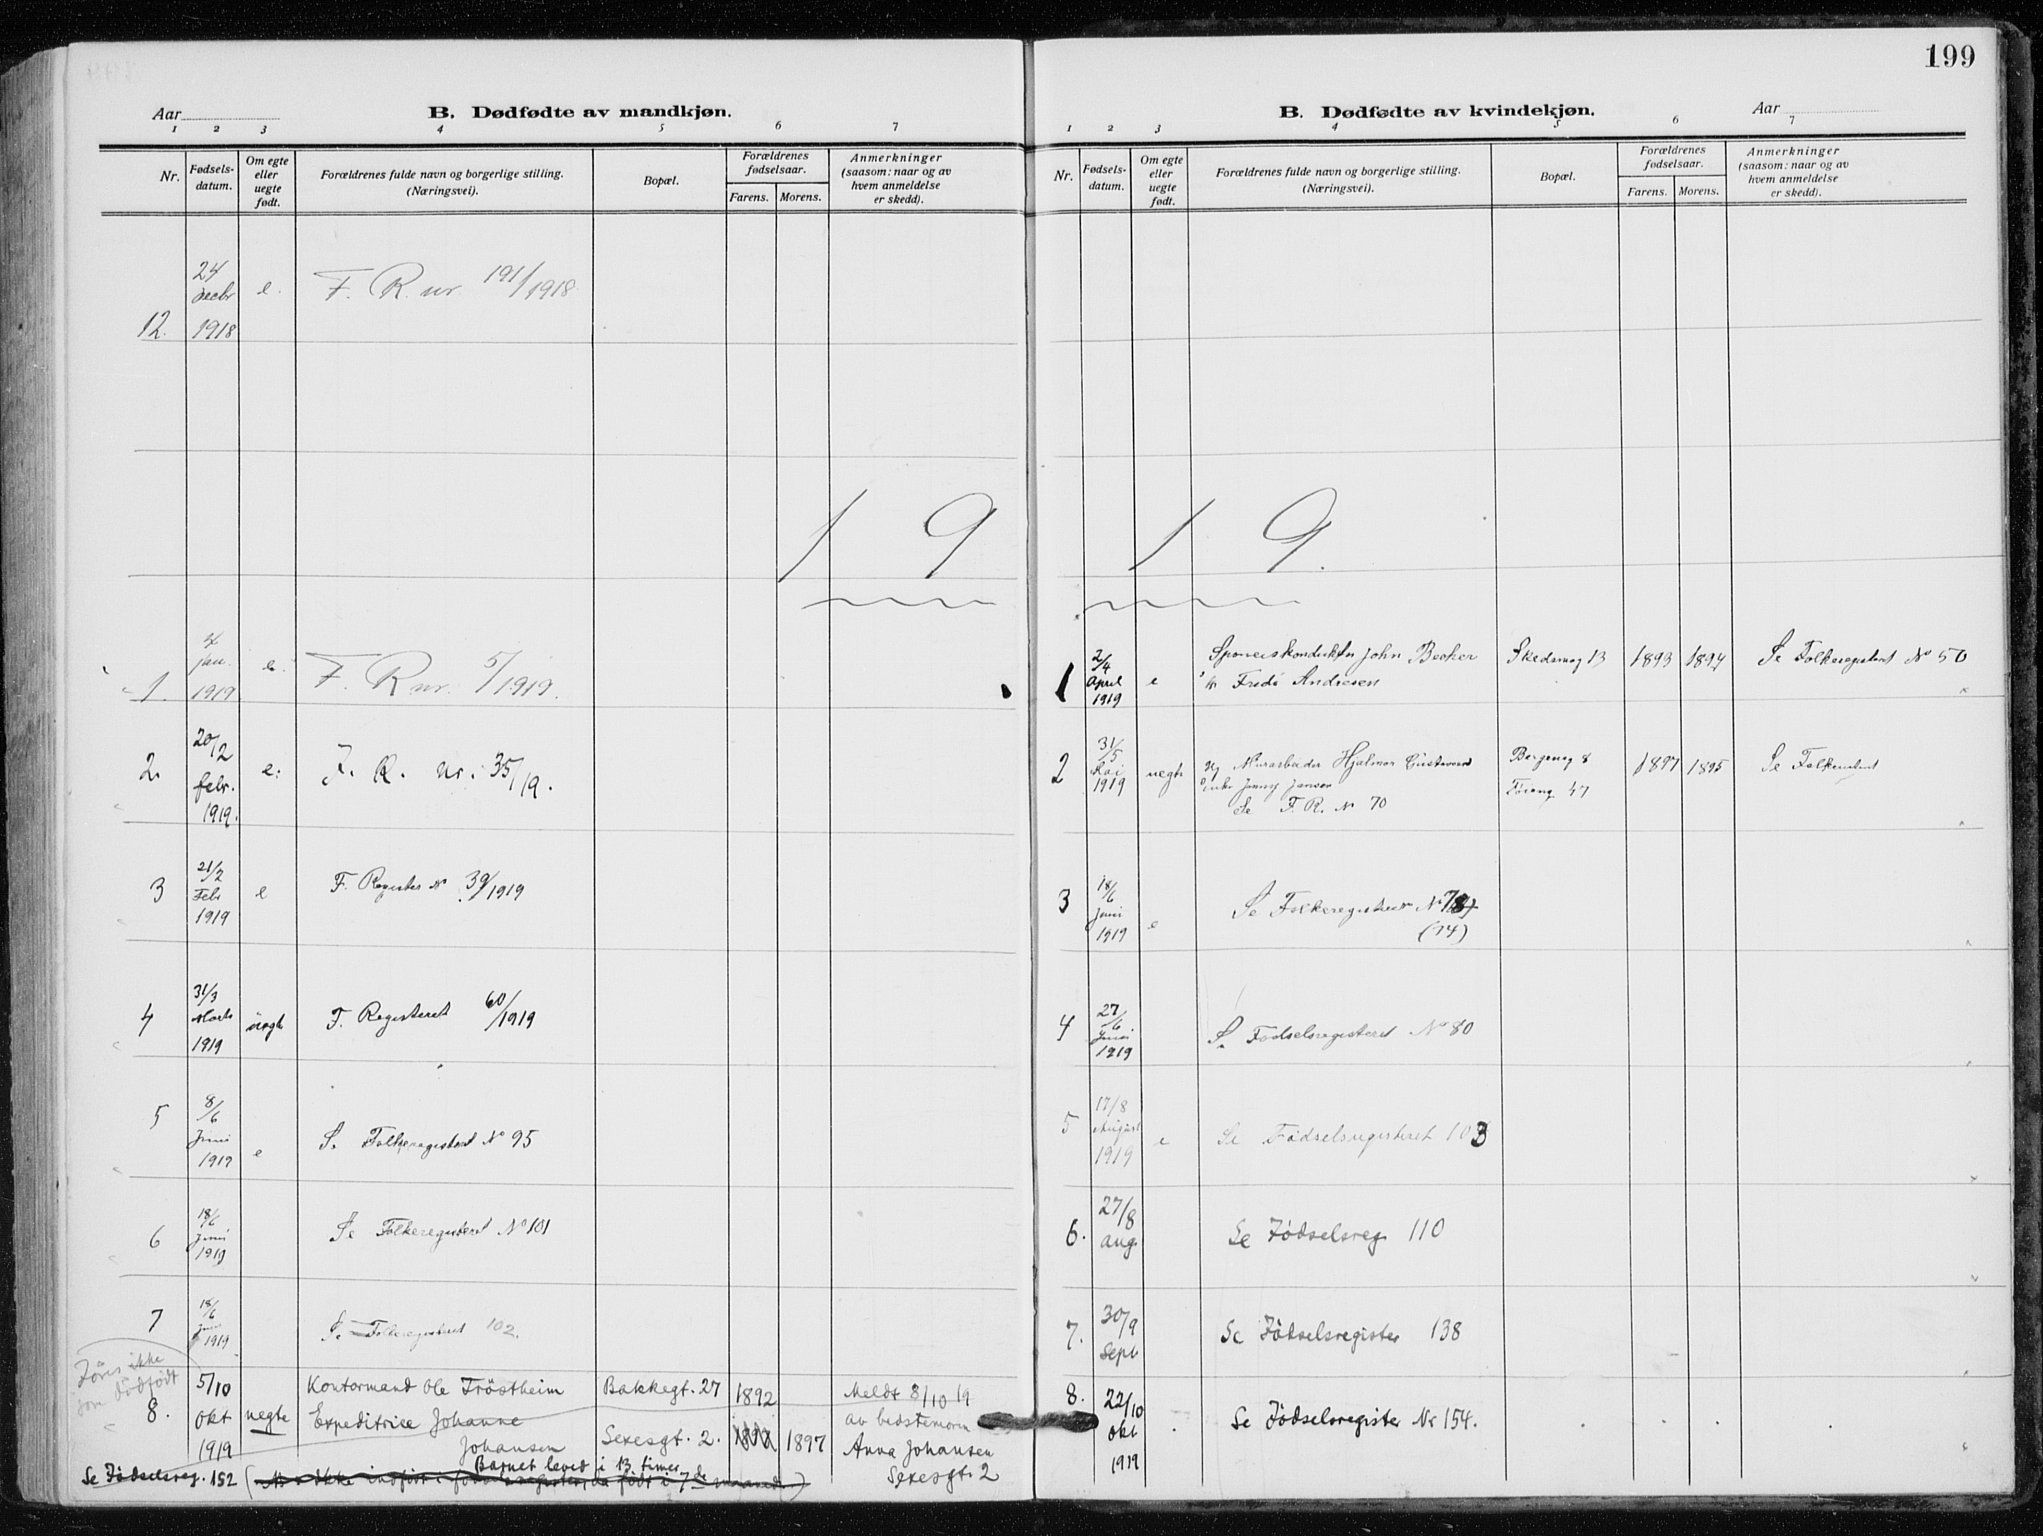 199
Aar
B. Dødfødte av mandkjøn.
1 2 3 4 5 6 7
Nr.
Fødsels-
datum.
Om egte
eller
uegte
født.
Forældrenes fulde navn og borgerlige stilling.
(Næringsvei).
Bopæl.
Forældrenes
fødselsaar.
Farens. Morens.
Anmerkninger
(saasom: naar og av
hvem anmeldelse
er skedd).
24
decbr e. F. R. nr 191/1918
12. 1918
1 9
4
jan. e. F. R nr. 5/1919.
1. 1919
20/2
2. febr. e. F. R. nr. 35/19.
1919.
21/2
3 Febr e F. Register No 39/1919
1919
31/3
4 Marts uegte F. Registeret 60/1919
1919
8/6
5 Juni e Se Folkeregisteret No 95
1919
18/6
6 Juni Se Folkeregisteret No 101
1919
18/6
7 Juni Se Folkeregisteret 102.
1919
Föres ikke
som dödfödt
5/10 Kontormand Ole Tröstheim Bakkegt. 27 1892 Meldt 8/10 19
8. okt uegte Expeditrice Johanne av bedstemoren
1919 Johansen Sexesgt. 2. 1897 Anna Johansen
Barnet leved i 13 timer Sexesgt. 2
Se Födselsreg. 152
B. Dødfødte av kvindekjøn.
Aar
1 2 3 4 5 6 7
Nr.
Fødsels-
datum.
Om egte
eller
uegte
født.
Forældrenes fulde navn og borgerlige stilling.
(Næringsvei).
Bopæl.
Forældrenes
fødselsaar.
Farens. Morens.
Anmerkninger
(saasom: naar og av
hvem anmeldelse
er skedd).
1 9.
2/4 John Becker 13 1893 1894 Se Folkeregisteret No 50
1 April e Andresen
1919
31/5 Hjalmar 8 1897 1895 Se
2 Mai uegte Jenny Jansen 47
1919 Se F. R. No 70
18/6
3 Juni e Se Folkeregisteret No 78
1919 (74)
27/6
4 Juni Se Fødselsregisteret No 80
1919
17/8
5 August e Se Fødselsregisteret 103
1919
27/8
6. aug. Se Födselsreg 110
30/9
7. Sept Se Födselsregister 138
8. 22/10
okt Se Födselsregister Nr 154.
1919